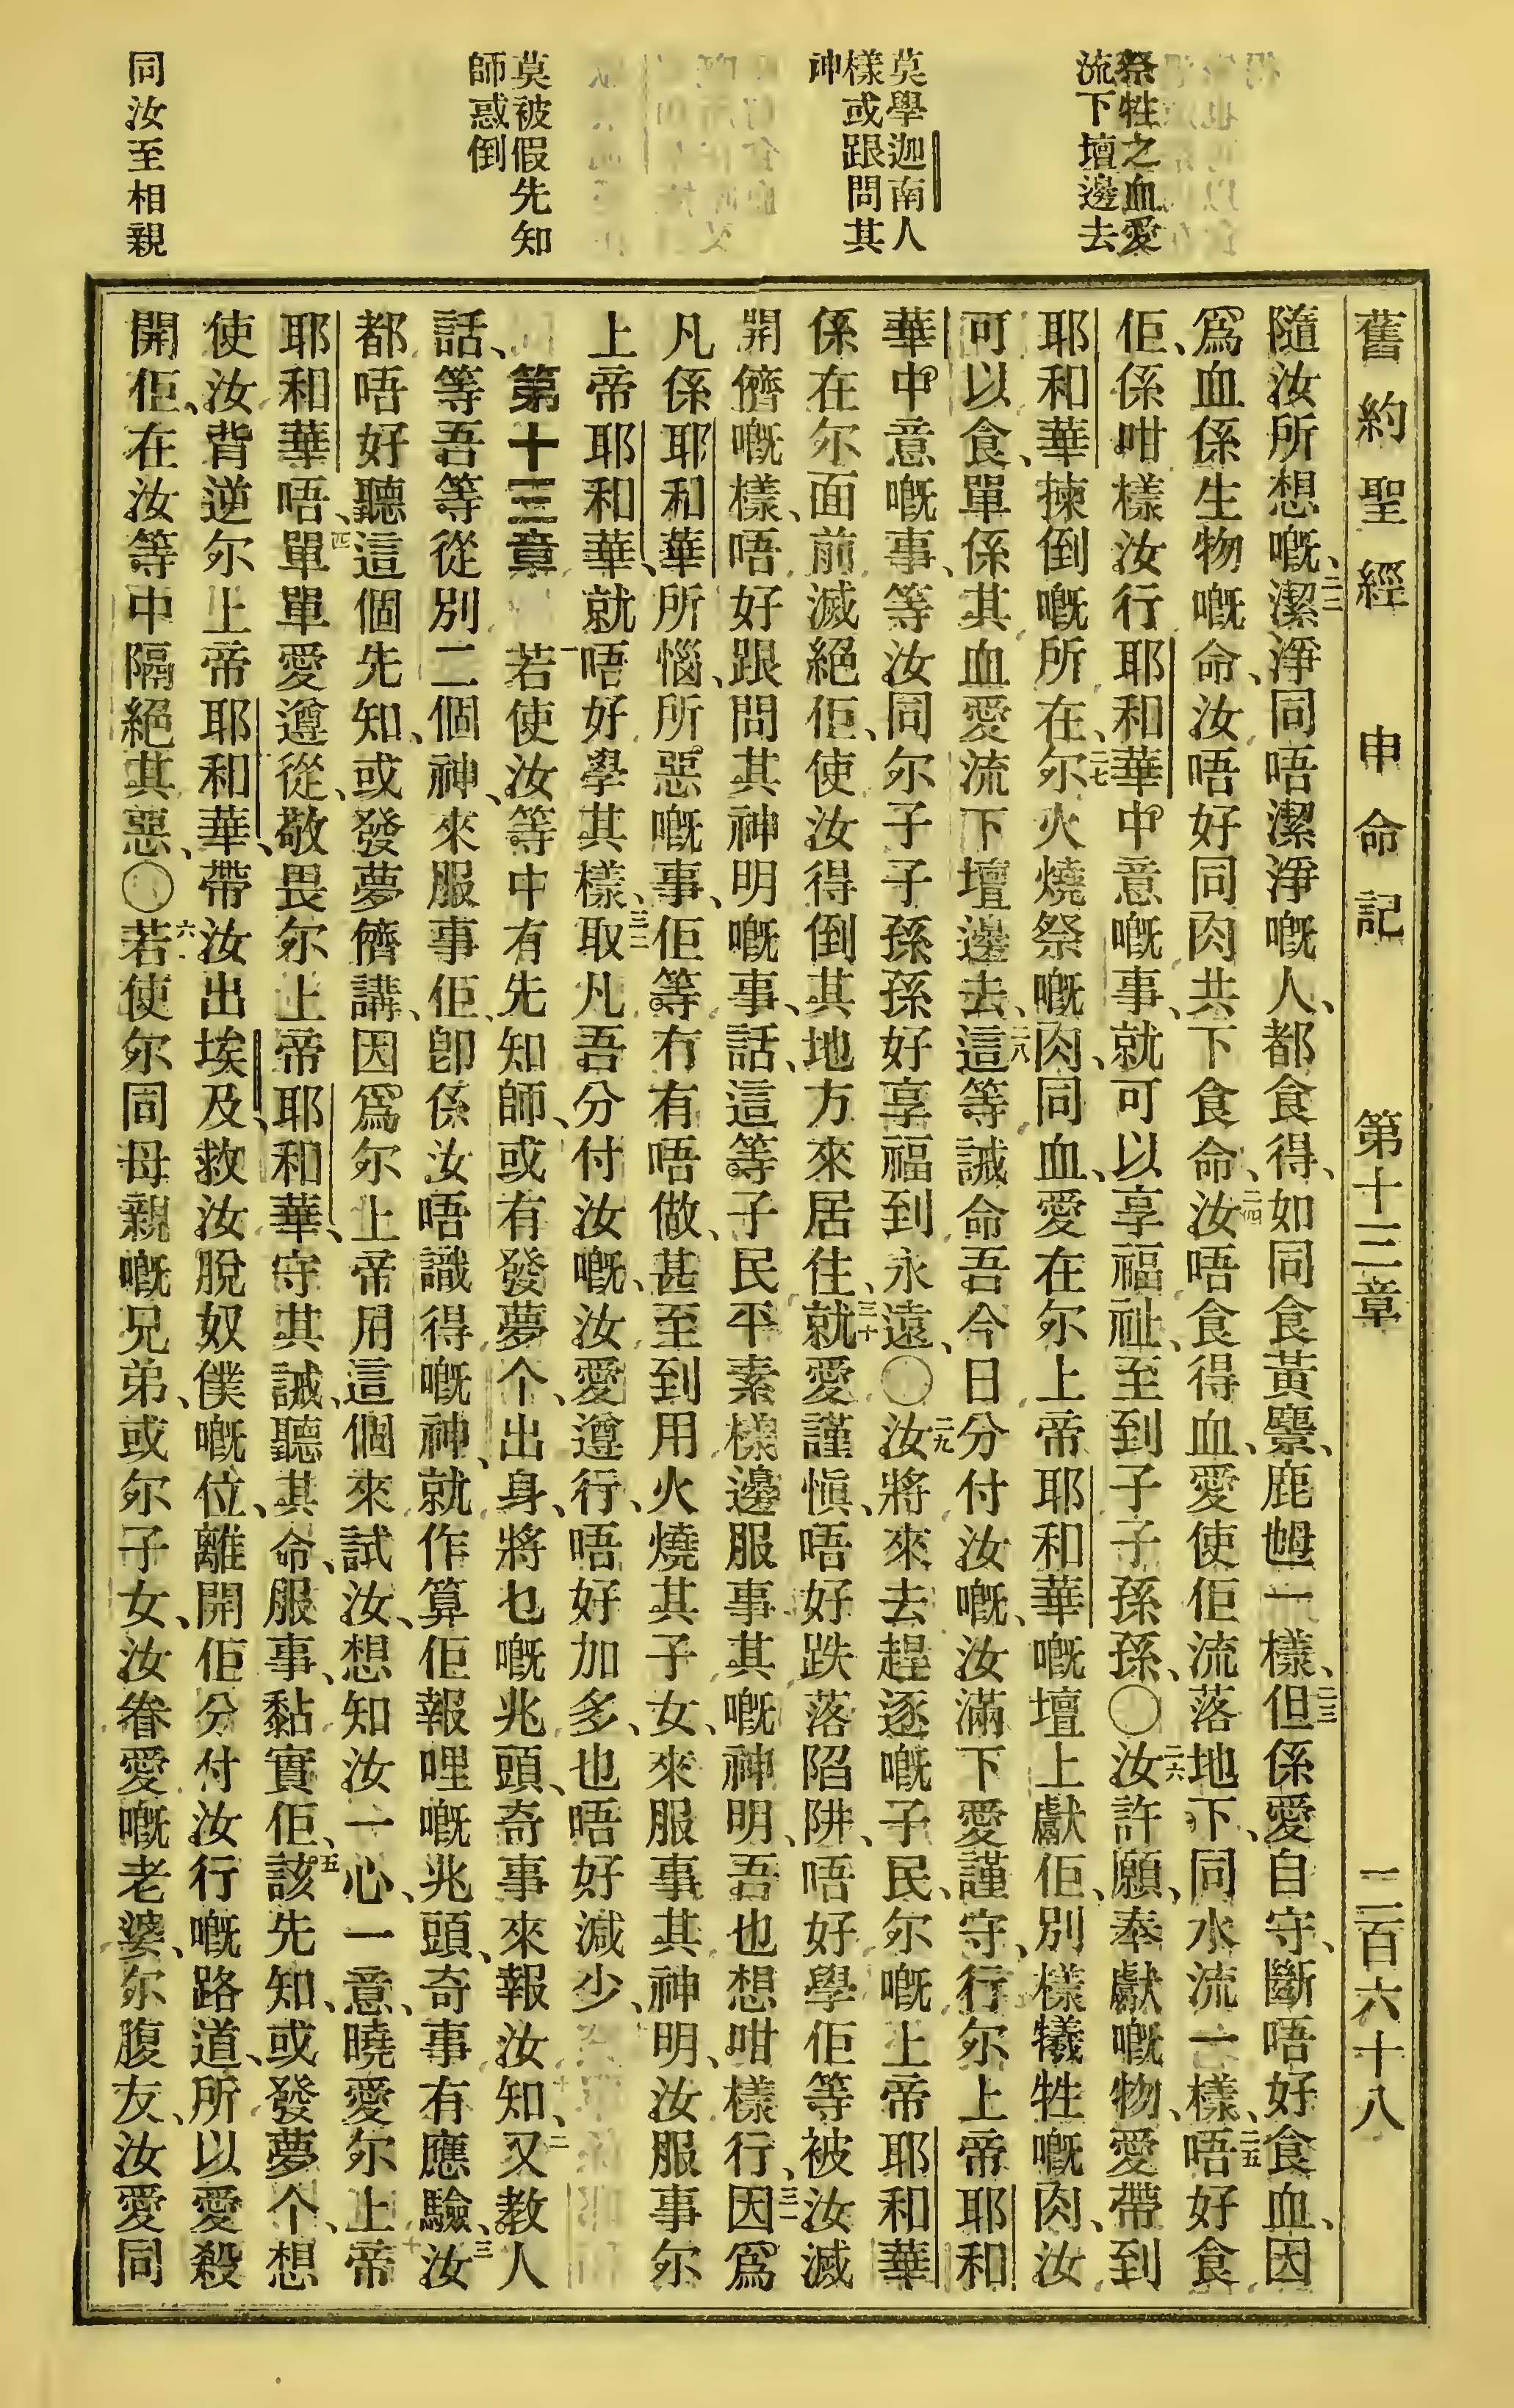 祭牲之血愛
流下壇邊去
莫學迦南人
樣或跟問其
神
莫被假先知
師惑倒
同汝至相親
舊約聖經 申命記 第十三章 二百六十八
隨汝所想嘅、二二潔淨同唔潔淨嘅人、都食得、如同食黃麖、鹿乸一樣、二三但係愛自守、斷唔好食血、因
爲血係生物嘅命、汝唔好同肉共下食命、二四汝唔食得血、愛使佢流落地下、同水流一樣、二五唔好食
佢、係咁樣汝行耶和華中意嘅事、就可以享福祉、至到子子孫孫、〇二六汝許願、奉獻嘅物、愛帶到
耶和華揀倒嘅所在、二七尔火燒祭嘅肉、同血、愛在尔上帝耶和華嘅壇上獻佢、別樣犧牲嘅肉、汝
可以食、單係其血愛流下壇邊去、二八這等誡命吾今日分付汝嘅、汝滿下愛謹守、行尔上帝耶和
華中意嘅事、等汝同尔子子孫孫好享福到永遠、〇二九汝將來去趕逐嘅子民、尔嘅上帝耶和華
係在尔面前滅絕佢、使汝得倒其地方來居住、三十就愛謹愼、唔好跌落陷阱、唔好學佢等被汝滅
開儕嘅樣、唔好跟問其神明嘅事、話、這等子民平素樣邊服事其嘅神明、吾也想咁樣行、三一因爲
凡係耶和華所惱、所惡嘅事、佢等冇有唔做、甚至到用火燒其子女、來服事其神明、汝服事尔
上帝耶和華、就唔好學其樣、三二取凡吾分付汝嘅、汝愛遵行、唔好加多、也唔好減少、
第十三章 一若使汝等中有先知師、或有發夢个、出身、將乜嘅兆頭、奇事來報汝知、二又敎人
話、等吾等從別二個神、來服事佢、卽係汝唔識得嘅神、就作算佢報哩嘅兆頭、奇事有應驗、三汝
都唔好聽這個先知、或發夢儕講、因爲尔上帝用這個來試汝、想知汝一心、一意、曉愛尔上帝
耶和華唔、四單單愛遵從、敬畏尔上帝耶和華、守其誡、聽其命、服事、黏實佢、五該先知、或發夢个、想
使汝背逆尔上帝耶和華、帶汝出埃及、救汝脫奴僕嘅位、離開佢分付汝行嘅路道、所以愛殺
開佢、在汝等中隔絕其惡、〇六若使尔同母親嘅兄弟、或尔子女、汝眷愛嘅老婆、尔腹友、汝愛同